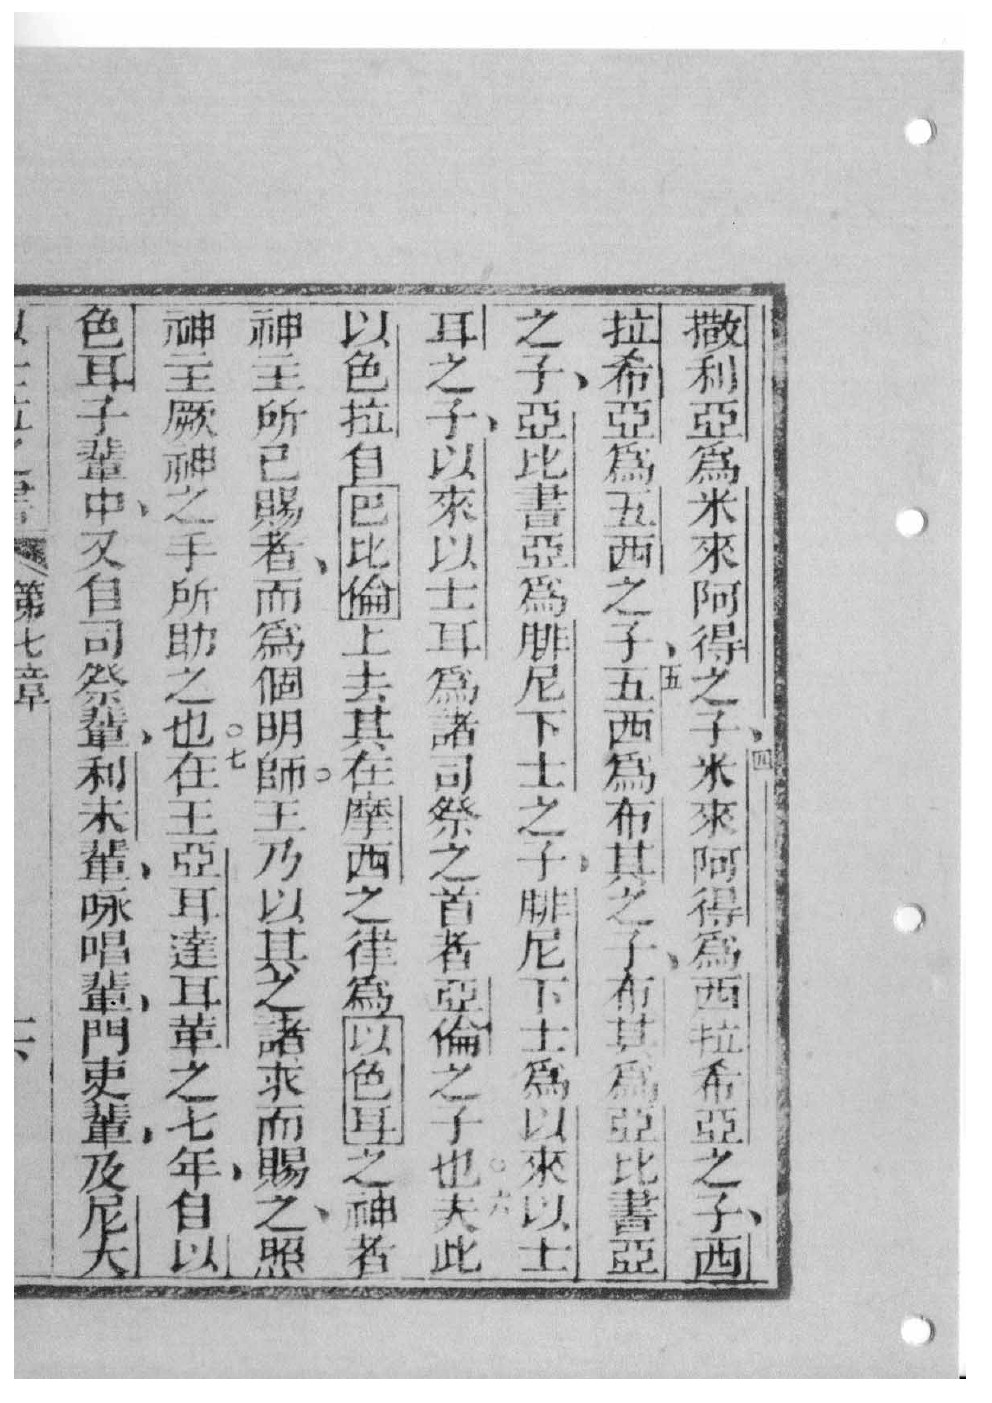 撒利亞爲米來阿得之子、四米來阿得爲西拉希亞之子、西
拉希亞爲五西之子、五五西爲布其之子、布其爲亞比書亞
之子、亞比書亞爲腓尼下士之子、腓尼下士爲以來以士
耳之子、以來以士耳爲諸司祭之首者亞倫之子也。六夫此
以色拉自巴比倫上去其在摩西之律爲以色耳之神者
神主所已賜者、而爲個明師。王乃以其之諸求而賜之、照
神主厥神之手所助之也。七在王亞耳達耳革之七年、自以
色耳子輩中、又自司祭輩、利未輩、咏唱輩、門吏輩、及尼大
第七章